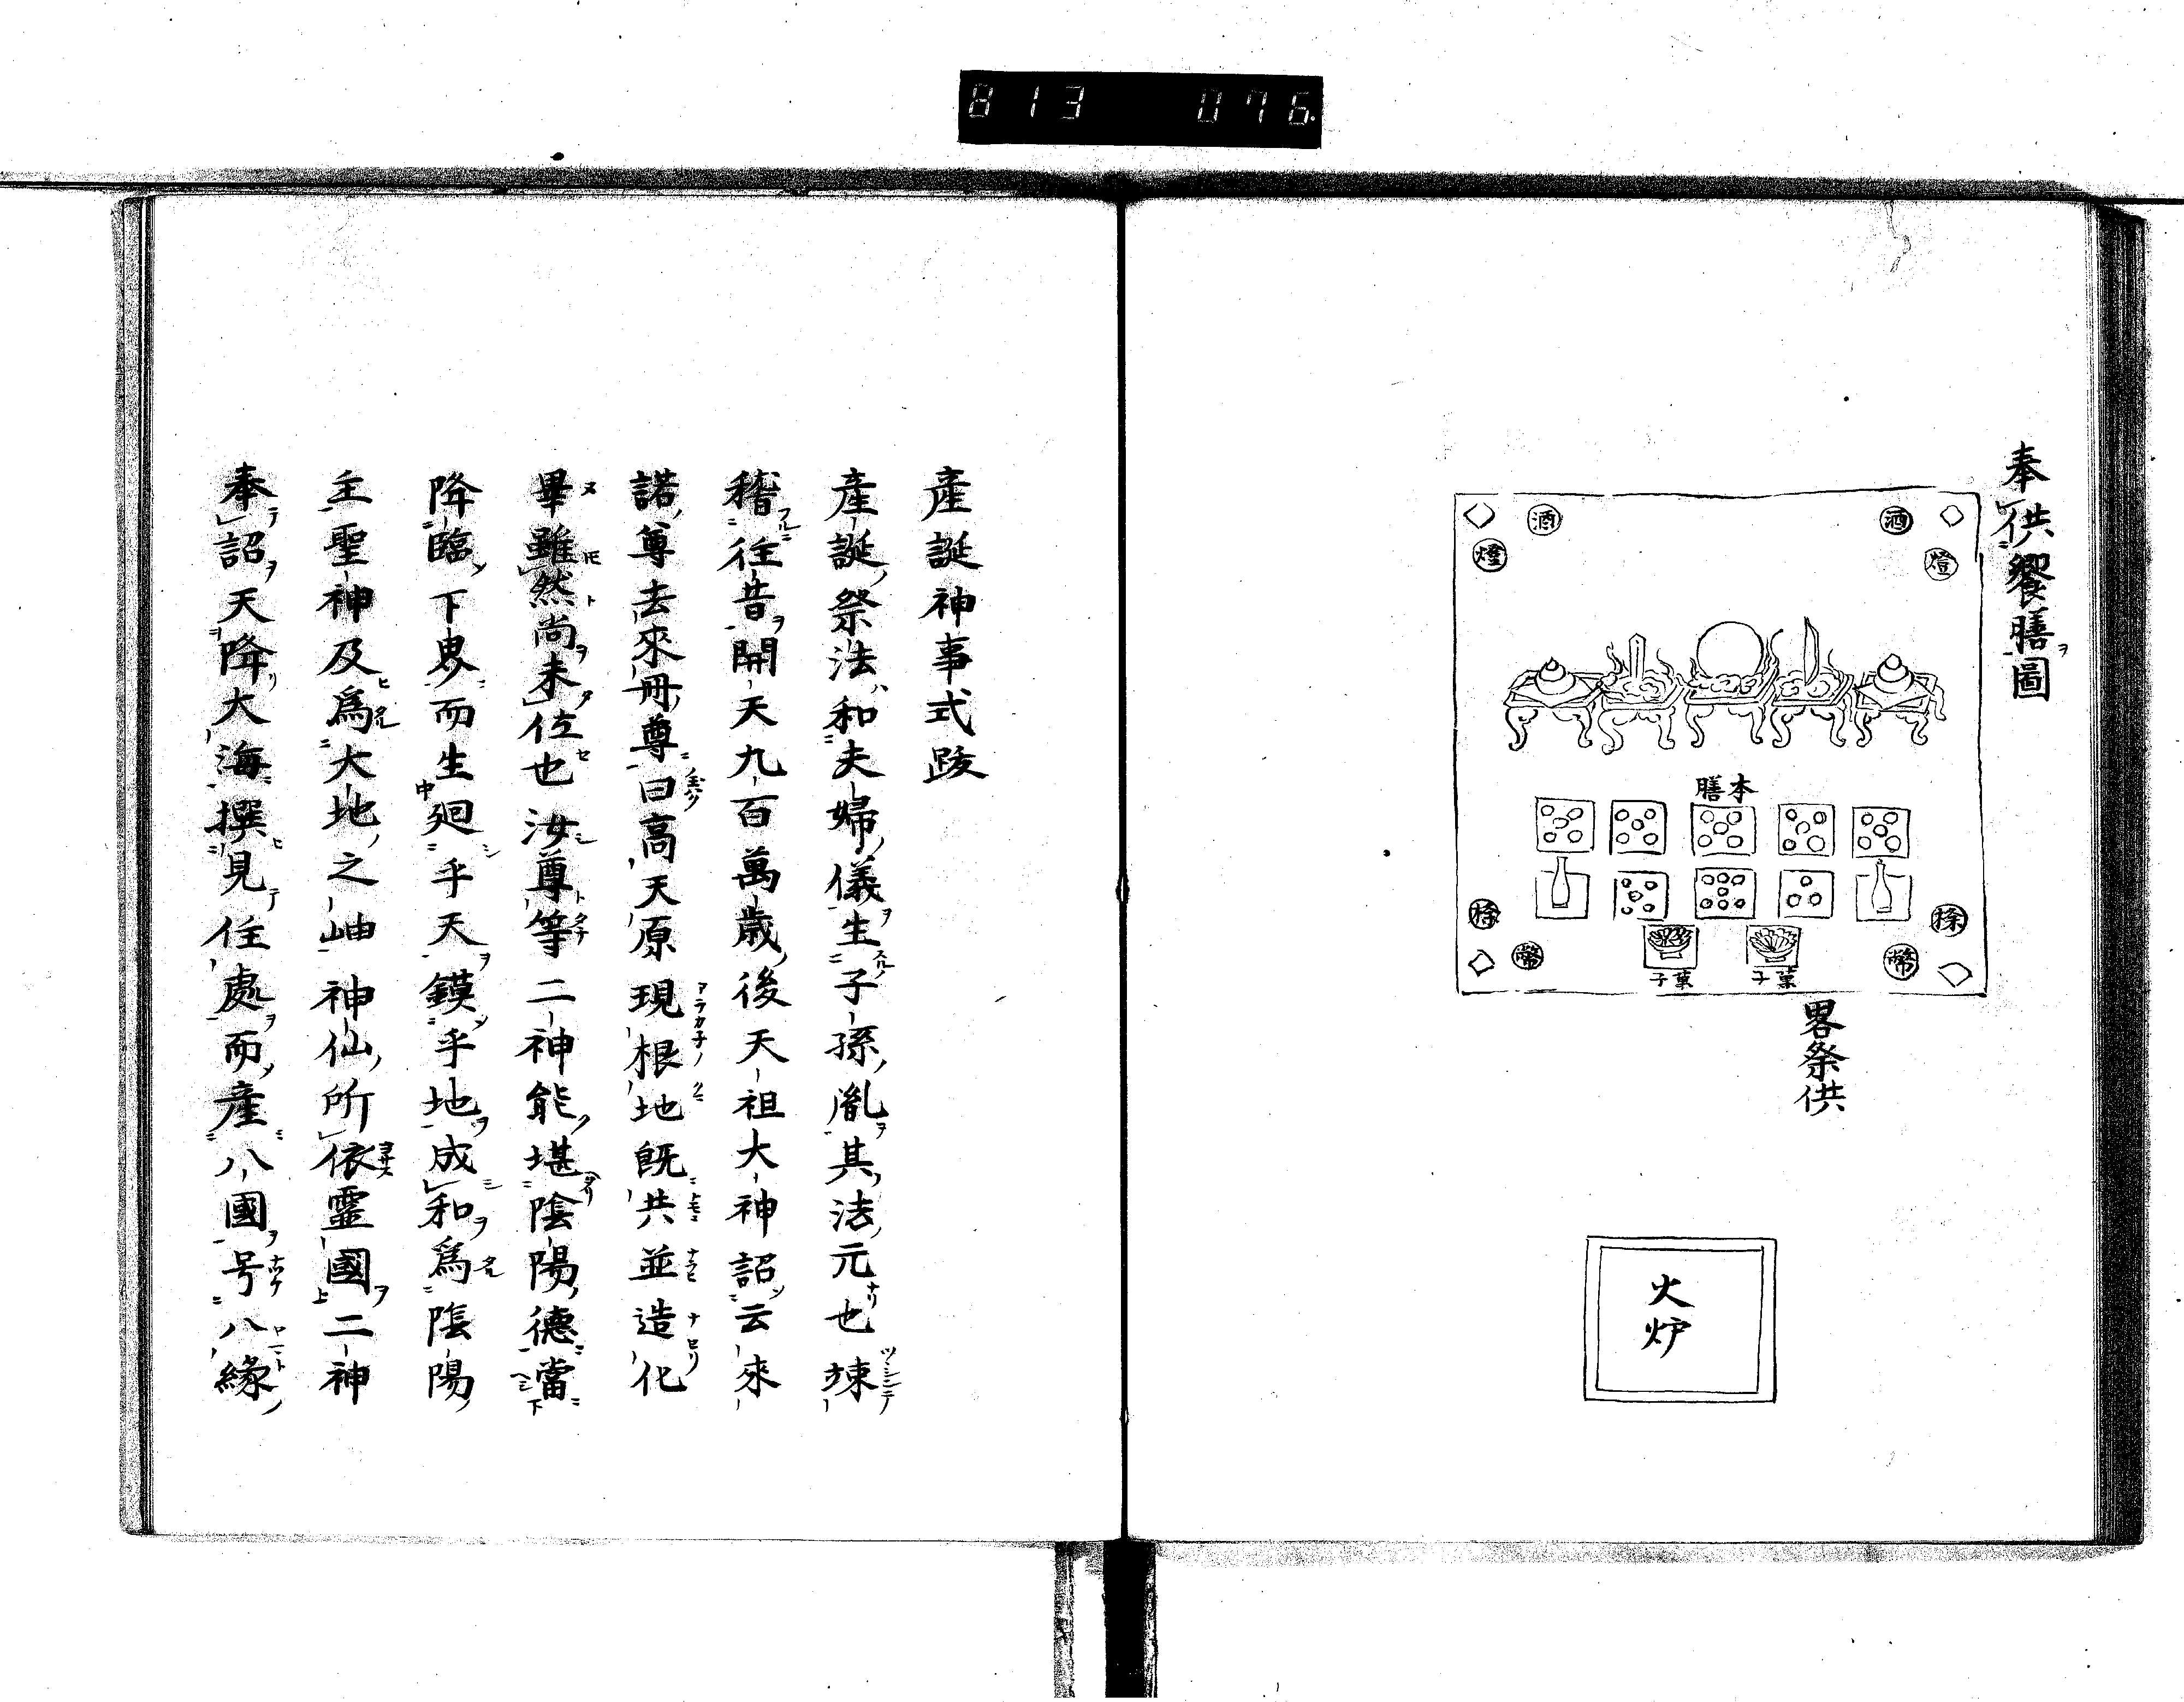 813 076
奉供饗膳圖
酒 酒
燈 燈
本膳
榊 榊
幣 幣
菓子 菓子
畧祭供
火炉
產誕神事式跋
產誕祭法和夫婦儀生子孫胤其法元也竦
稽往昔開天九百萬歲後天祖大神詔云來
諾尊去來冊尊曰高天原現根地既共並造化
畢雖然尚未位也汝尊等二神能堪陰陽德當
降臨下界而生廻乎天鏌乎地成和爲陰陽
主聖神及爲大地之岫神仙所依靈國二神
奉詔天降大海撰見住處而產八國号八緣